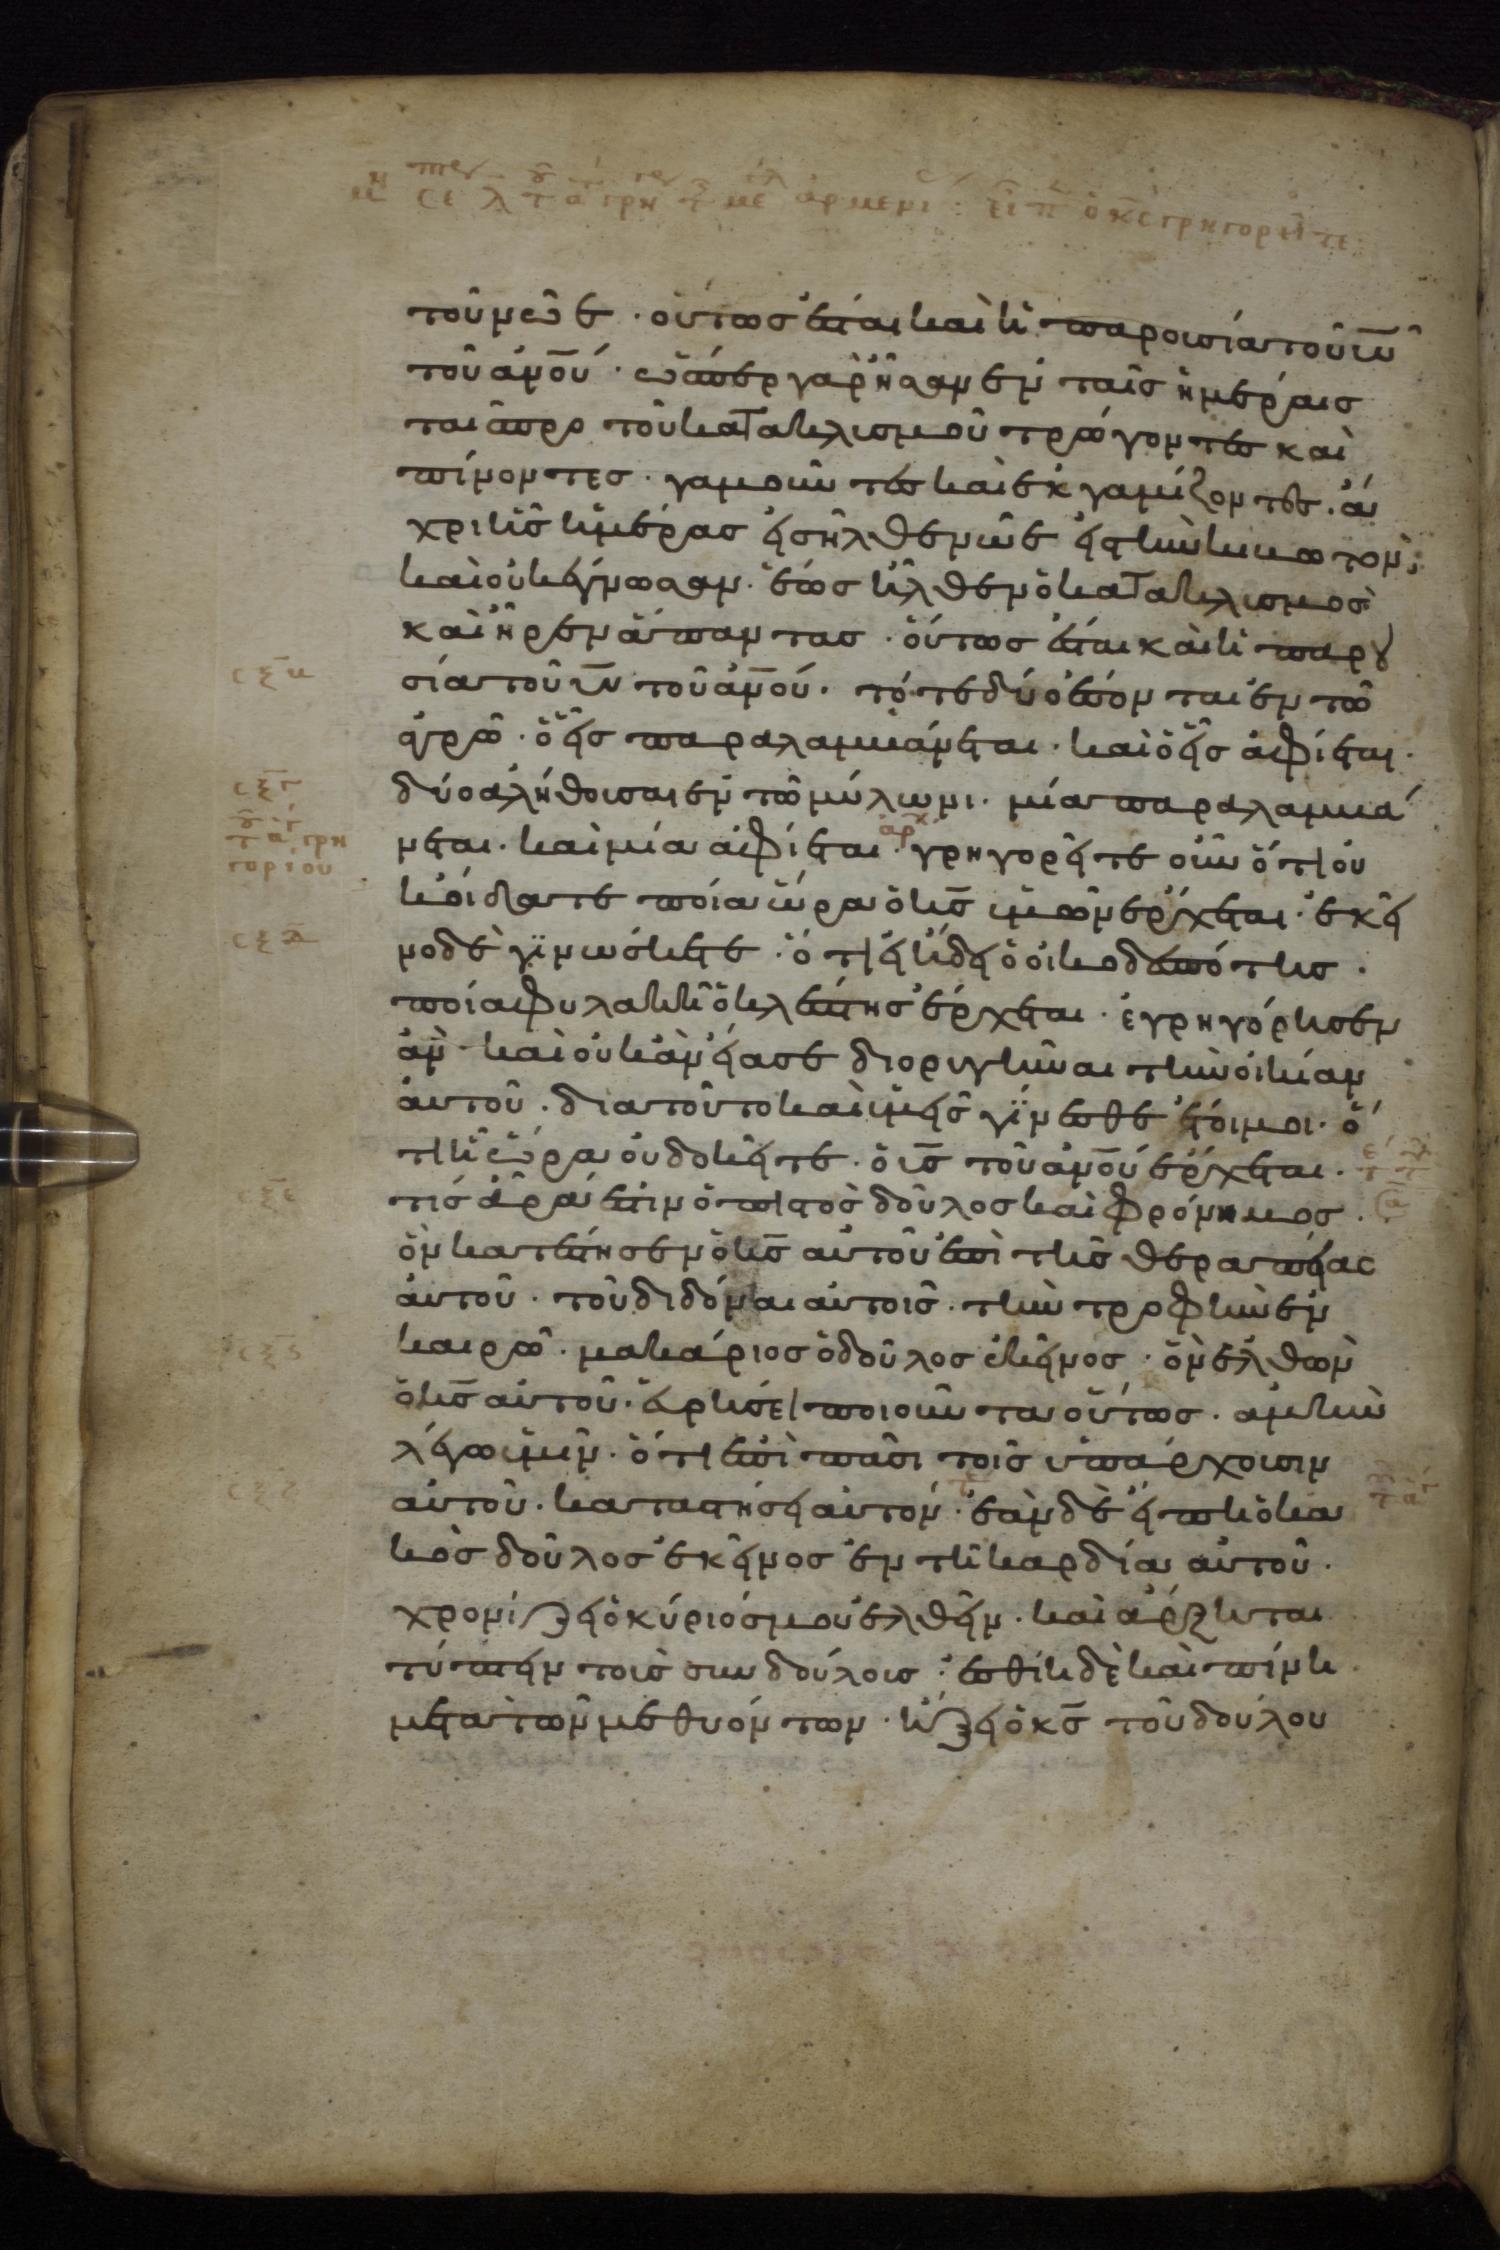 τοῦ νῶε · οὕτως ἔσται καὶ ἡ παρουσία τοῦ υυ
τοῦ ἀνου · ὥσπερ γὰρ ἦσαν ἐν ταῖς ἡμέραις
ταῖς προ τοῦ κατακλισμοῦ τρώγοντες καὶ
πίνοντες · γαμοῦντες καὶ ἐκγαμίζοντες · ἄ
χρι ἧς ἡμέρας εἰσῆλθε νῶε εἰς τὴν κιβωτόν ·
καὶ οὐκ ἔγνωσαν · ἕως ἦλθεν ὁ κατακλισμος
καὶ ἦρεν ἅπαντας · οὕτως ἔσται καὶ ἡ παρου
σία τοῦ υυ τοῦ ἀνου · τότε δύο ἔσονται ἐν τῶ
ἀγρῶ · ὁ εἷς παραλαμβάνεται · καὶ ὁ εἷς ἀφίεται ·
δύο ἀλήθουσαι ἐν τῶ μύλωνι · μία παραλαμβά
νεται · καὶ μία ἀφίεται · γρηγορεῖτε οὖν ὅτι οὐ
κ οἴδατε ποία ὥρα ὁ κς ὑμῶν ἔρχεται · ἐκεῖ
νο δὲ γινώσκετε · ὅτι εἰ ἤδει ὁ οἰκοδεσπότης ·
ποία φυλακῆ ὁ κλέπτης ἔρχεται · ἐγρηγόρησεν
ἂν · καὶ οὐκ ἂν εἴασε διορυγῆναι τὴν οἰκίαν
αὐτοῦ · δια τοῦτο καὶ ὑμεῖς γίνεσθε ἕτοιμοι · ὅ
τι ἧ ὥρα οὐ δοκεῖτε · ὁ υς τοῦ ἀνου ἔρχεται ·
τίς ἄρα ἐστὶν ὁ πιστος δοῦλος καὶ φρόνημος ·
ὃν κατέστησεν ὁ κς αὐτοῦ ἐπὶ τῆς θεραπείας
αὐτοῦ · τοῦ διδόναι αὐτοῖς · τὴν τροφὴν ἐν
καιρῶ · μακάριος ὁ δοῦλος ἐκεῖνος · ὃν ἐλθὼν
ὁ κς αὐτοῦ · εὑρήσει ποιοῦντα οὕτως · ἀμὴν
λέγω ὑμῖν · ὅτι ἐπὶ πᾶσι τοῖς ὑπάρχουσιν
αὐτοῦ · καταστήσει αὐτόν · ἐὰν δὲ εἴπη ὁ κα
κὸς δοῦλος ἐκεῖνος ἐν τῆ καρδία αὐτοῦ ·
χρονίζει ὁ κύριός μου ἐλθεῖν · καὶ ἄρξηται
τύπτειν τοὺς συνδούλους · ἐσθίη δὲ καὶ πίνη
μετα τῶν μεθυόντων · ἥξει ὁ κς τοῦ δούλου